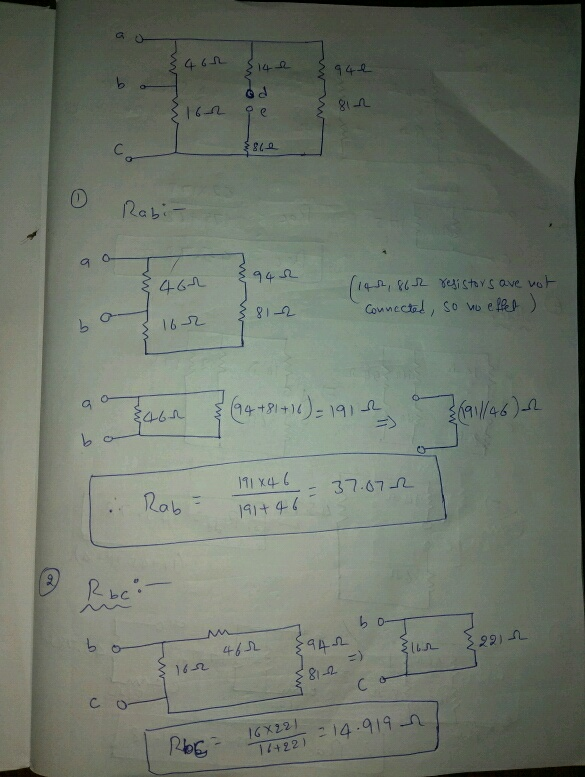 a
46Ω 14Ω 94Ω
b d
e
16Ω 81Ω
C 86Ω
① Rab:-
a
46Ω 94Ω
(14Ω, 86Ω resistors are not
connected, so no effect)
b 16Ω 81Ω
a
46Ω (94+81+16) = 191 Ω ⇒ (191//46)Ω
b
∴ Rab = 191×46 / 191+46 = 37.07Ω
② Rbc:-
b 46Ω 94Ω
16Ω 81Ω ⇒
C
b
16Ω 221Ω
C
Rbc = 16×221 / 16+221 = 14.919 Ω